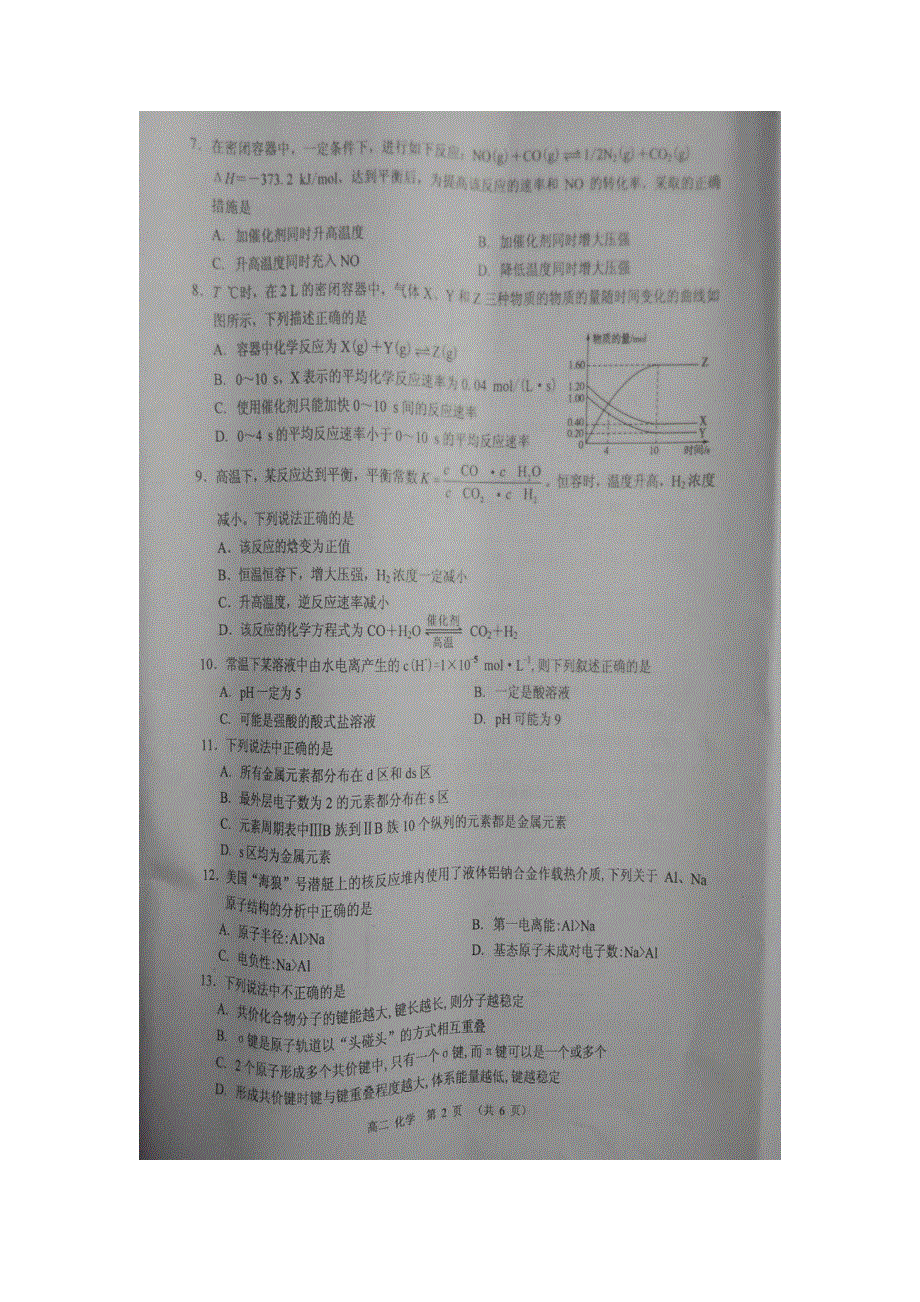 7. 在密闭容器中，一定条件下，进行如下反应：NO(g)+CO(g)⇌1/2N₂(g)+CO₂(g)
ΔH=-373.2 kJ/mol，达到平衡后，为提高该反应的速率和 NO 的转化率，采取的正确
措施是
A. 加催化剂同时升高温度
B. 加催化剂同时增大压强
C. 升高温度同时充入 NO
D. 降低温度同时增大压强
8. T ℃时，在 2 L 的密闭容器中，气体 X、Y 和 Z 三种物质的物质的量随时间变化的曲线如
图所示，下列描述正确的是
A. 容器中化学反应为 X(g)+Y(g)⇌Z(g)
B. 0～10 s，X 表示的平均化学反应速率为 0.04 mol/(L·s)
C. 使用催化剂只能加快 0～10 s 间的反应速率
D. 0～4 s 的平均反应速率小于 0～10 s 的平均反应速率
物质的量/mol
1.60
Z
1.20
1.00
0.40
X
0.20
Y
0
4
10
时间/s
9. 高温下，某反应达到平衡，平衡常数 K = c CO · c H₂O / c CO₂ · c H₂ 。恒容时，温度升高，H₂ 浓度
减小。下列说法正确的是
A．该反应的焓变为正值
B．恒温恒容下，增大压强，H₂ 浓度一定减小
C．升高温度，逆反应速率减小
D．该反应的化学方程式为 CO＋H₂O 催化剂 ⇌ 高温 CO₂＋H₂
10. 常温下某溶液中由水电离产生的 c(H⁺)=1×10⁻⁵ mol·L⁻¹,则下列叙述正确的是
A. pH 一定为 5
B. 一定是酸溶液
C. 可能是强酸的酸式盐溶液
D. pH 可能为 9
11. 下列说法中正确的是
A. 所有金属元素都分布在 d 区和 ds 区
B. 最外层电子数为 2 的元素都分布在 s 区
C. 元素周期表中ⅢB 族到ⅡB 族 10 个纵列的元素都是金属元素
D. s 区均为金属元素
12. 美国“海狼”号潜艇上的核反应堆内使用了液体铝钠合金作载热介质,下列关于 Al、Na
原子结构的分析中正确的是
A. 原子半径:Al>Na
B. 第一电离能:Al>Na
C. 电负性:Na>Al
D. 基态原子未成对电子数:Na>Al
13. 下列说法中不正确的是
A. 共价化合物分子的键能越大,键长越长,则分子越稳定
B. σ键是原子轨道以“头碰头”的方式相互重叠
C. 2 个原子形成多个共价键中,只有一个σ键,而π键可以是一个或多个
D. 形成共价键时键与键重叠程度越大,体系能量越低,键越稳定
高二 化学 第 2 页 （共 6 页）